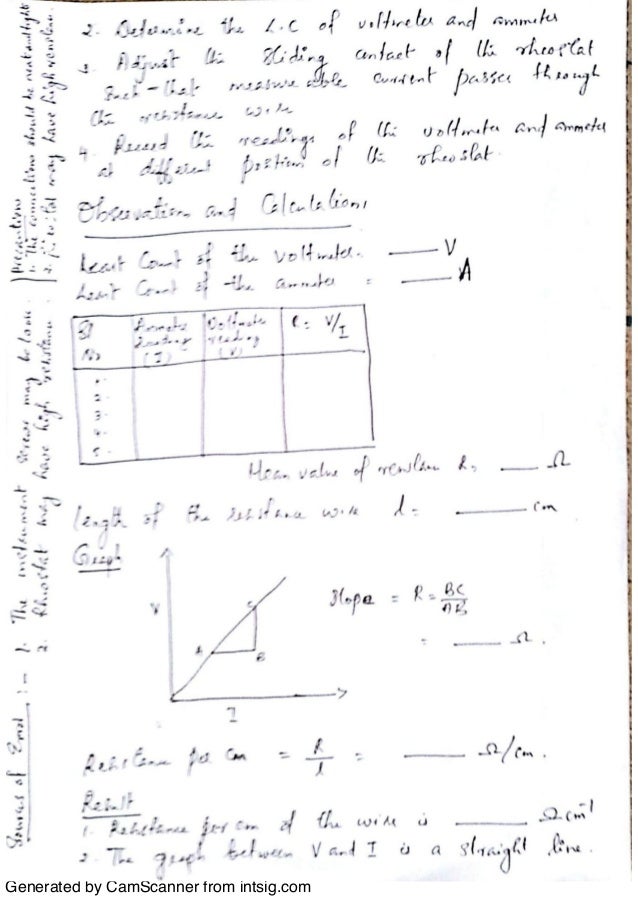 2. Determine the L.C of voltmeter and ammeter
3. Adjust the sliding contact of the rheostat
such-that measureable current passes through
the resistance wire
4. Record the readings of the voltmeter and ammeter
at different position of the rheostat.
Observation and Calculations
Least Count of the voltmeter. ____ V
Least Count of the ammeter = ____ A
Sl No
Ammeter reading (I)
Voltmeter reading (V)
R = V/I
1.
2.
3.
4.
5.
Mean value of R = ____ Ω
length of the resistance wire l = ____ cm
Graph
V
A
B
C
I
Slope = R = BC/AB
= ____ Ω.
Resistance per cm = R/l = ____ Ω/cm.
Result
1. Resistance per cm of the wire is ____ Ω cm⁻¹
2. The graph between V and I is a straight line.
Sources of Error :- 1. The instrument screws may be loose.
2. Rheostat may have high resistance.
Precautions
1. The connections should be neat and tight
2. may have high resistance.
Generated by CamScanner from intsig.com